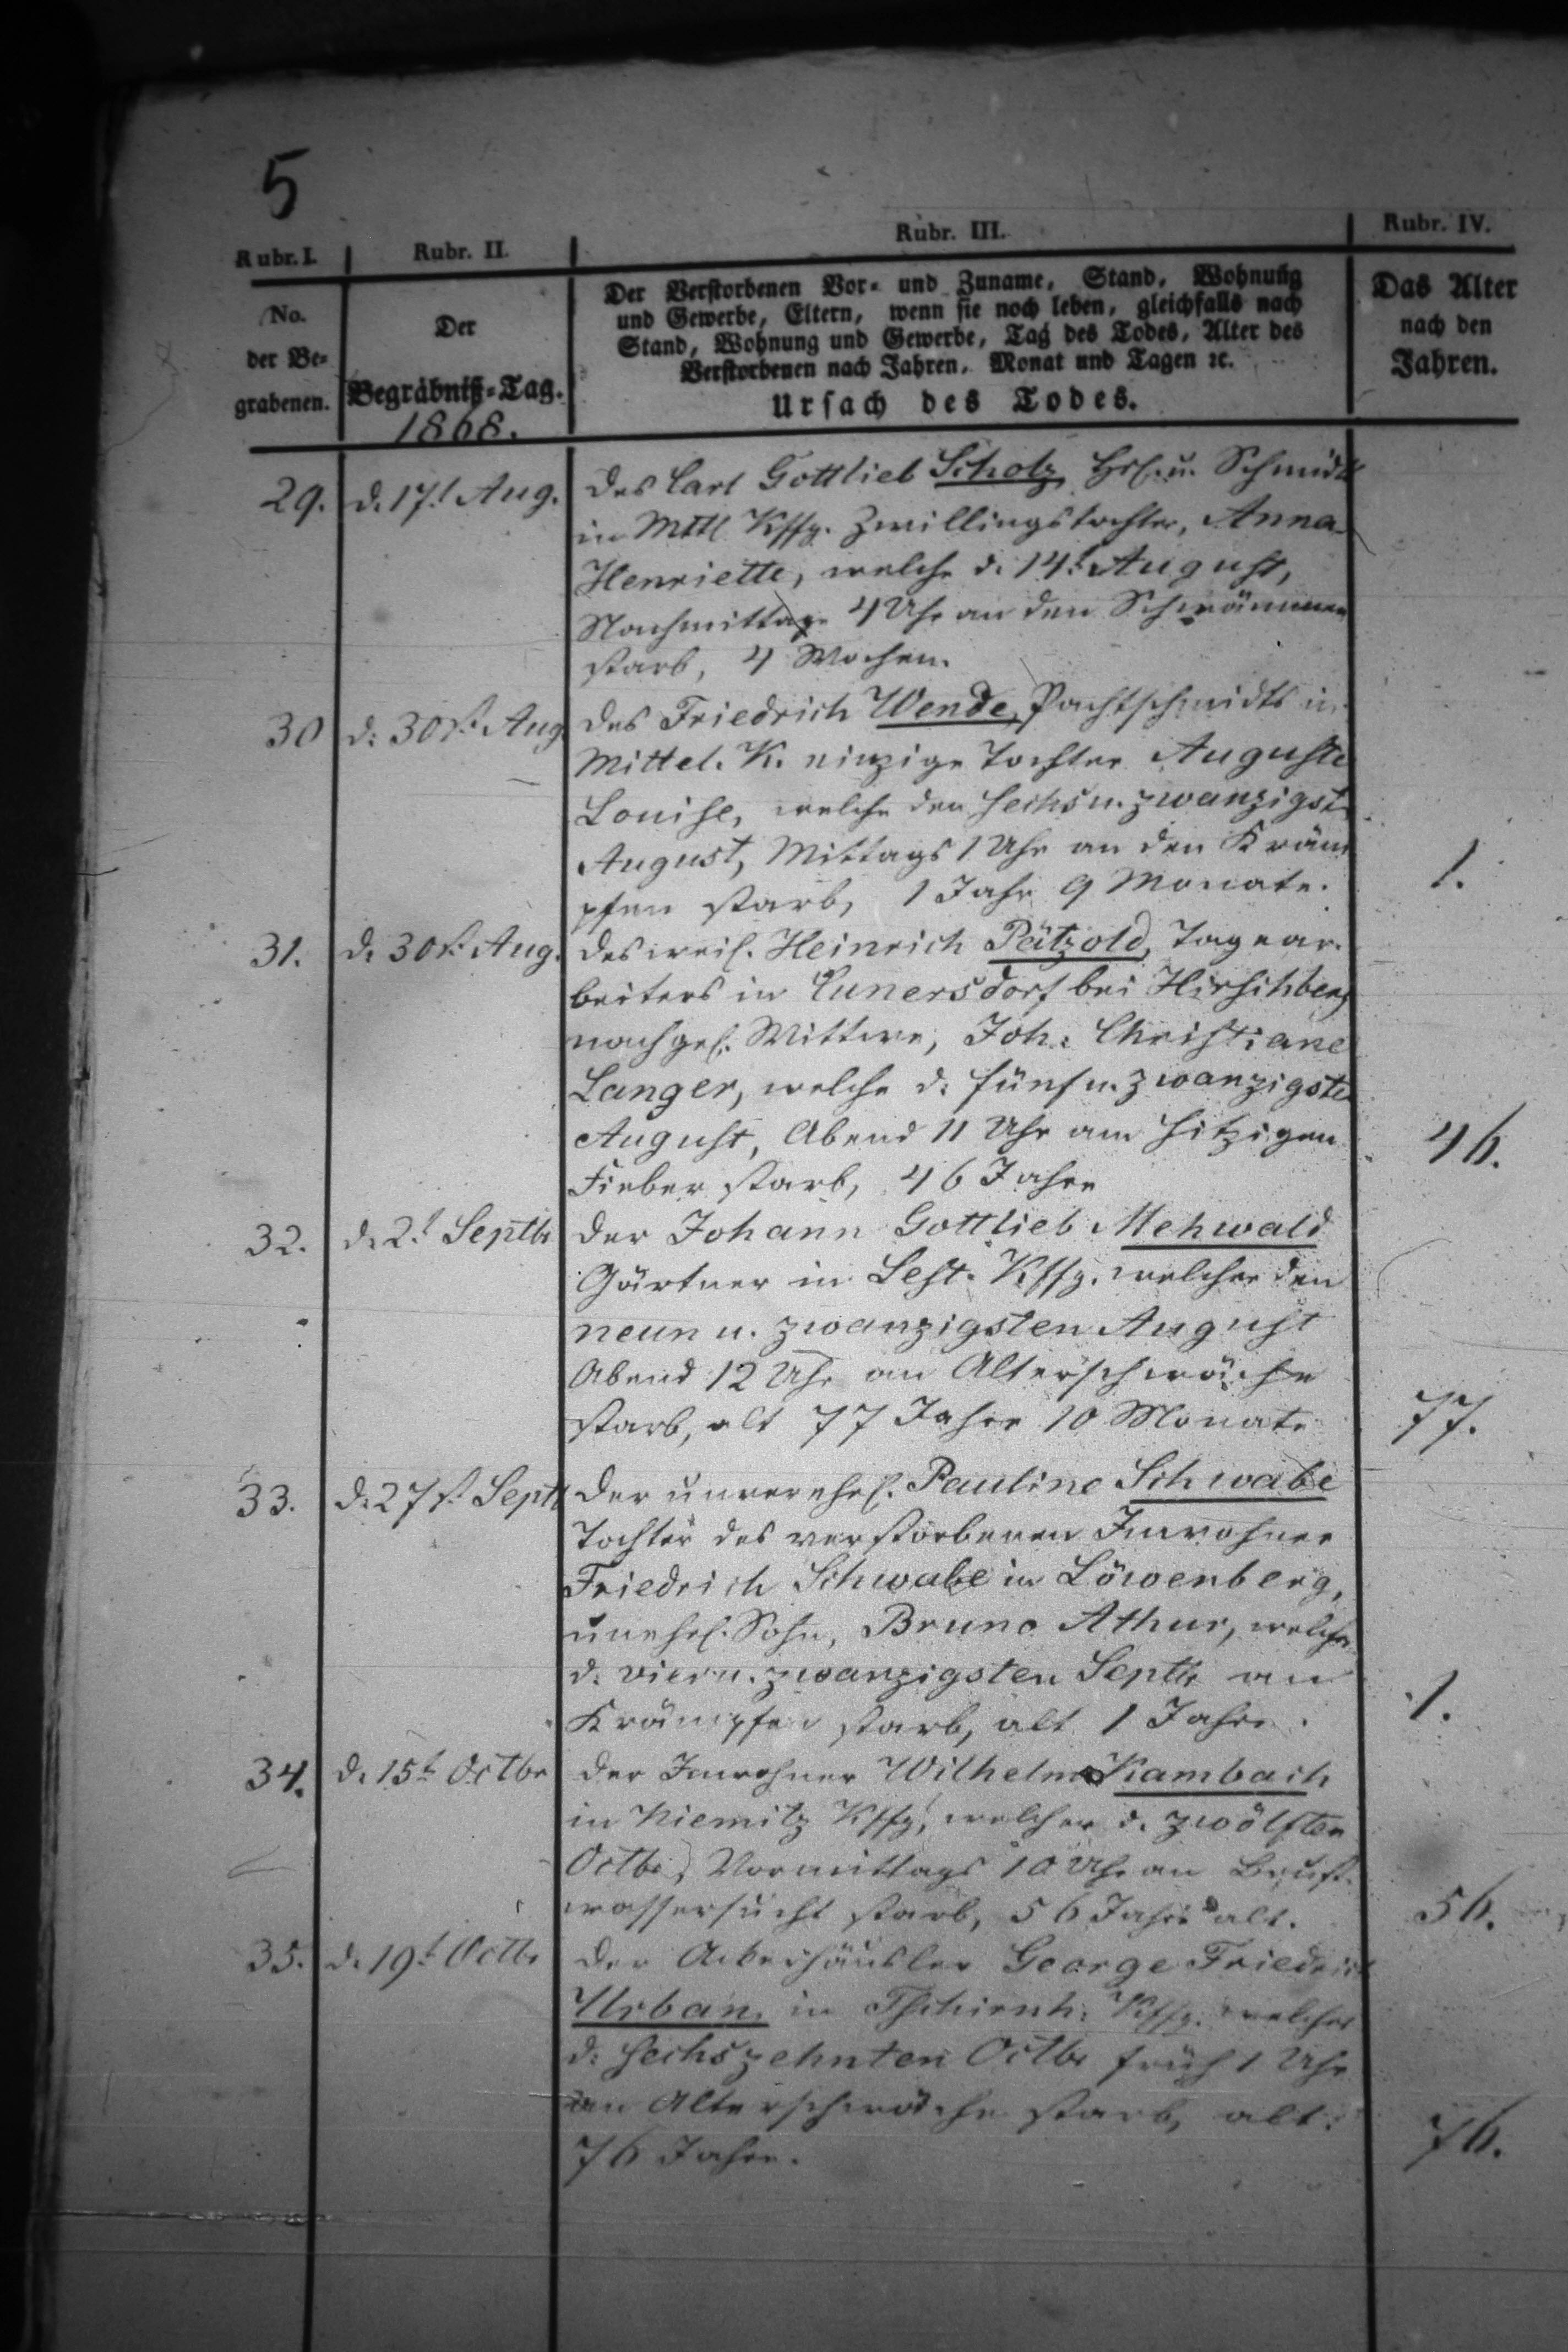 5
Rubr. I. Rubr. II. Rubr. III. Rubr. IV.
No.
der Be-
grabenen.
Der
Begräbniß-Tag.
1868.
Der Verstorbenen Vor- und Zuname, Stand, Wohnung
und Gewerbe, Eltern, wenn sie noch leben, gleichfalls nach
Stand, Wohnung und Gewerbe, Tag des Todes, Alter des
Verstorbenen nach Jahren, Monat und Tagen ꝛc.
Ursach des Todes.
Das Alter
nach den
Jahren.
29. d. 17t Aug. des Carl Gottlieb Scholz, Hsl. u. Schmidt
in Mttl Kffg. Zwillingstochter, Anna
Henriette, welche d. 14t August,
Nachmittag 4 Uhr an den Schwämmen
starb, 4 Wochen.
30 d. 30st Aug. des Friedrich Wende, Pachtschmidts in
Mittel. K. einzige Tochter Auguste
Louise, welche den sechsu. zwanzigst
August, Mittags 1 Uhr an den Kräm
pfen starb, 1 Jahr 9 Monate. 1.
31. d. 30st Aug. des weil. Heinrich Pätzold, Tagear-
beiters in Cunersdorf bei Hirschberg
nachgel. Wittwe, Joh. Christiane
Langer, welche d. fünfu. zwanzigste
August, Abend 11 Uhr am hitzigen
Fieber starb, 46 Jahre 46.
32. d. 2t Septbr der Johann Gottlieb Mehwald
Gärtner in Lest. Kffg. welcher den
neun u. zwanzigsten August
Abend 12 Uhr an Alterschwäche
starb, alt 77 Jahre 10 Monate 77.
33. d. 27st Sept der unverehel. Pauline Schwabe
Tochter des verstorbenen Inwohner
Friedrich Schwabe in Löwenberg,
unehel. Sohn, Bruno Athur, welcher
d. vieru. zwanzigsten Septbr an
Krämpfen starb, alt 1 Jahr. 1.
34. d. 15t Octbr der Inwohner Wilhelm Kambach
in Niemitz Kffg, welcher d. zwölften
Octbr, Vormittags 10 Uhr an Brust-
wassersucht starb, 56 Jahre alt. 56.
35. d. 19t Octbr der Ackerhäusler George Friedrich
Urban, in Tschirnh. Kffg. welcher
d. sechszehnten Octbr früh 1 Uhr
an Alterschwäche starb, alt
76 Jahre. 76.